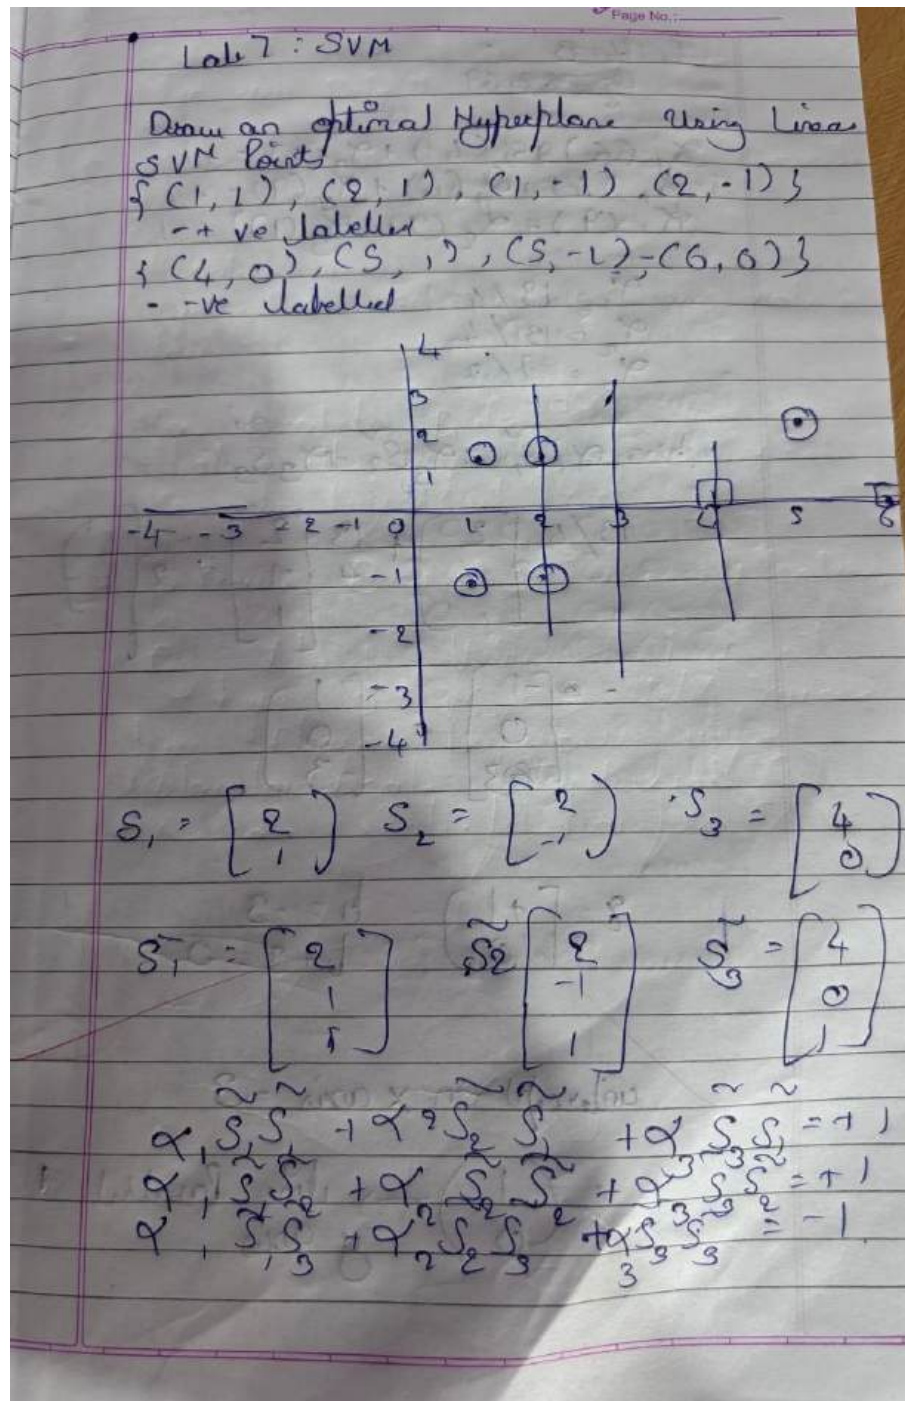 Page No.:
Lab 7 : SVM
Draw an optimal Hyperplane Using Linea
SVM Points
{ (1, 1), (2, 1), (1, -1) (2, -1) }
- + ve labelled
{ (4, 0), (5, 1), (5, -1), (6, 0) }
- -ve labelled
4
3
2
1
-4 -3 -2 -1 0 1 2 3 4 5 6
-1
-2
-3
-4
S1 = [ 2 1 ] S2 = [ 2 -1 ] S3 = [ 4 0 ]
S̃1 = [ 2 1 1 ] S̃2 [ 2 -1 1 ] S̃3 = [ 4 0 1 ]
α1 S̃1 S̃1 + α2 S̃2 S̃1 + α3 S̃3 S̃1 = +1
α1 S̃1 S̃2 + α2 S̃2 S̃2 + α3 S̃3 S̃2 = +1
α1 S̃1 S̃3 + α2 S2 S3 + α3 S3 S̃3 = -1